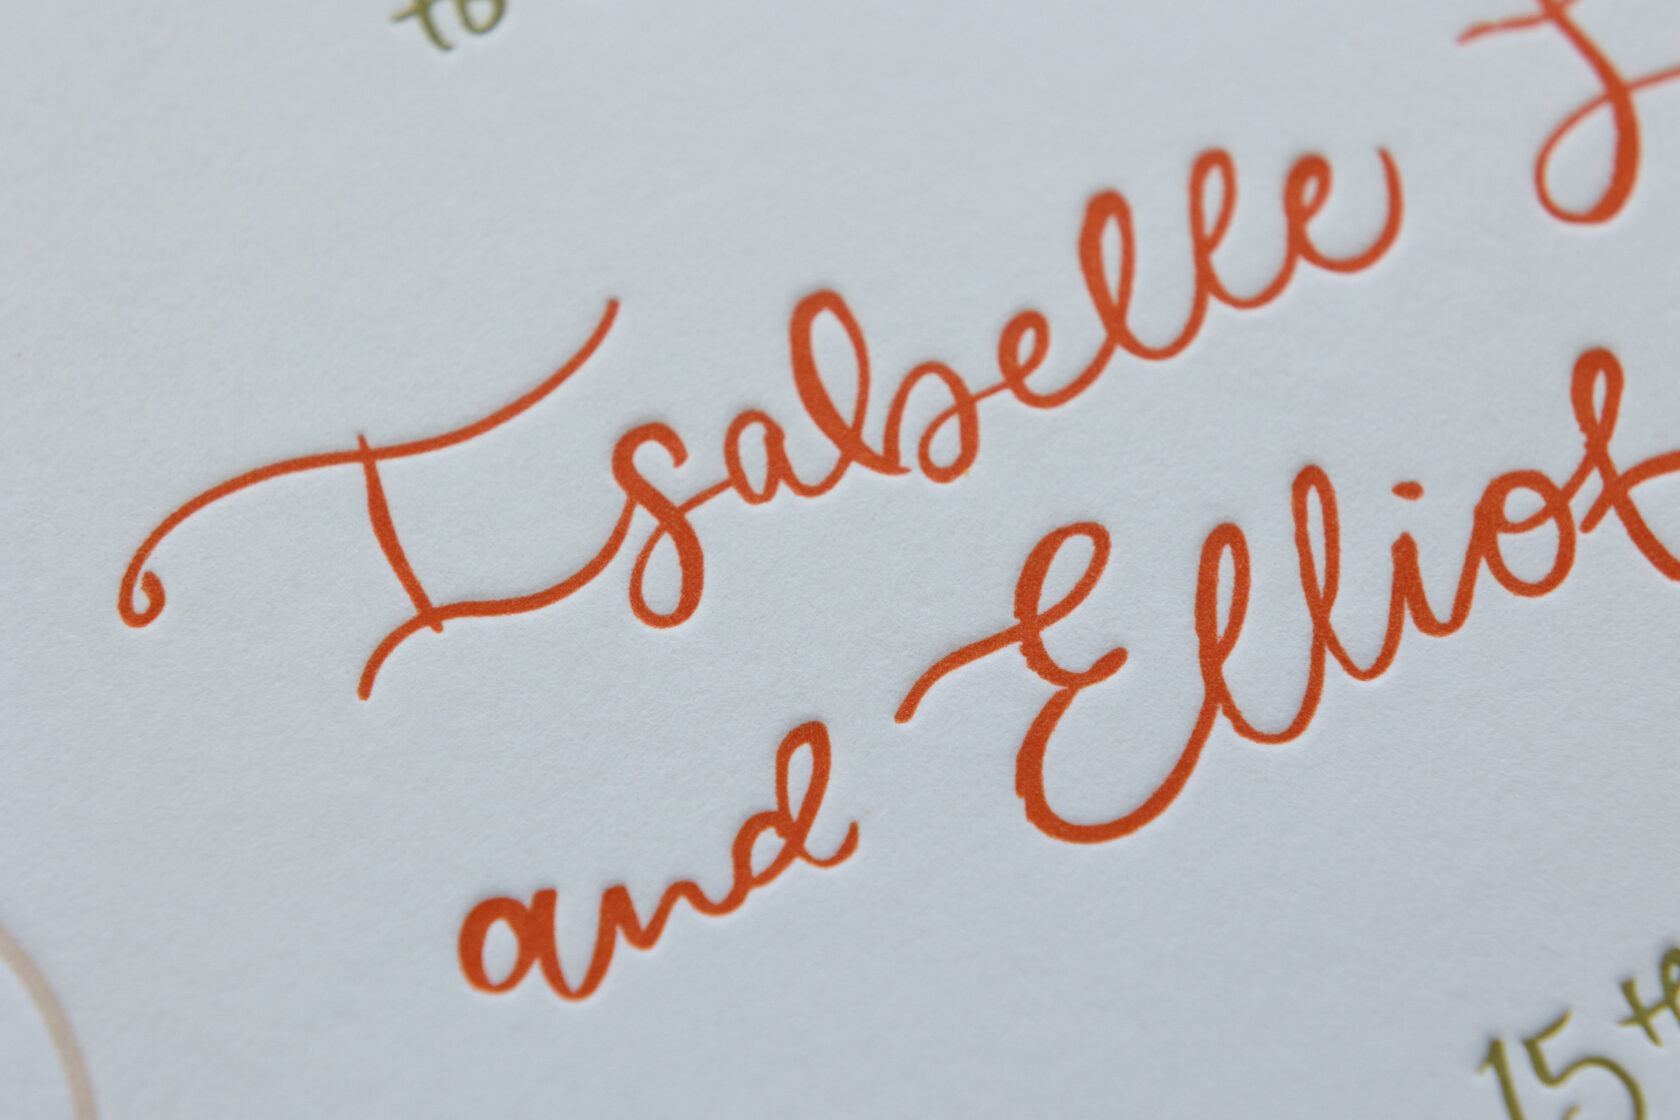 to
Isabelle
and Elliot
15th